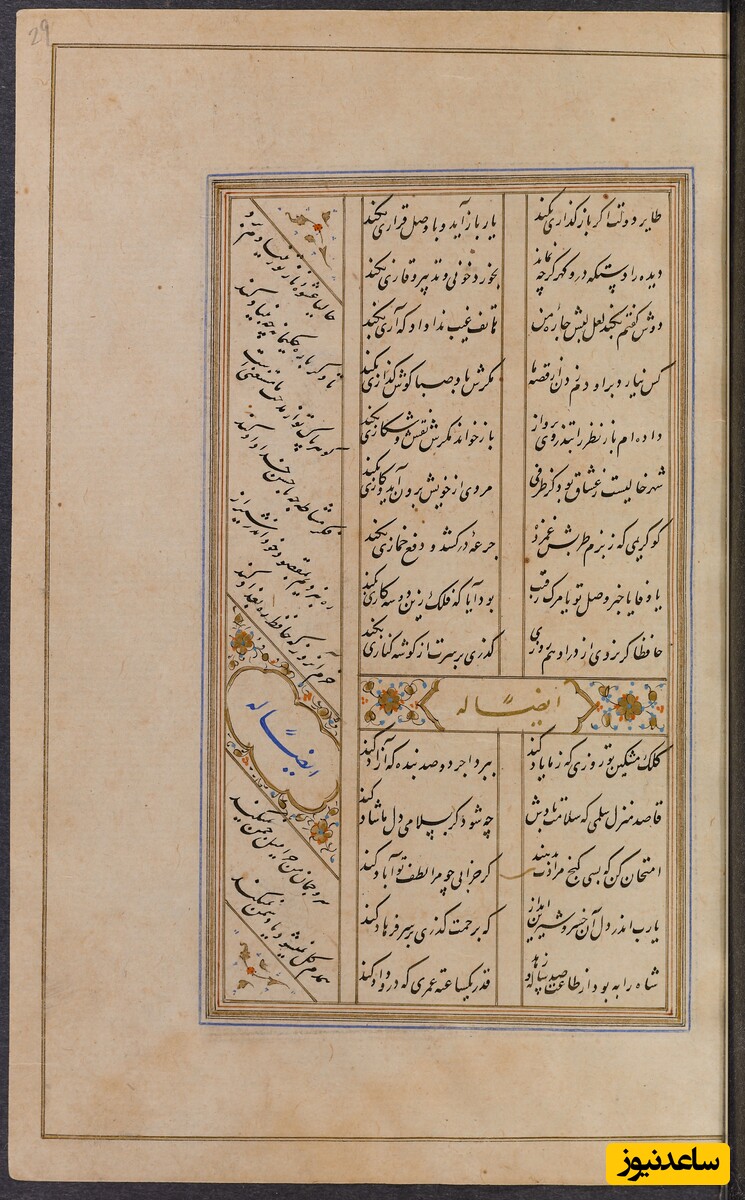 29
طایر دولت اگر باز گذاری بکند
یار باز آید و با وصل قراری بکند
دیده را دستگه در و گهر گرچه نماند
بخورد خونی و تدبیر نثاری بکند
دوش گفتم بکند لعل لبش چاره من
هاتف غیب ندا داد که آری بکند
کس نیارد بر او دم زدن از قصه ما
مگرش هم باد صبا گوش گذاری بکند
داده‌ام باز نظر را بتذروی پرواز
باز خواند مگرش نقش و شکاری بکند
شهر خالیست ز عشاق بود کز طرفی
مردی از خویش برون آید و کاری بکند
کو کریمی که ز بزم طربش غمزده
جرعه درکشد و دفع خماری بکند
یا وفا یا خبر وصل تو یا مرگ رقیب
بود آیا که فلک زین دو سه کاری بکند
حافظا گر نروی از در او هم روزی
گذری بر سرت از گوشه کناری بکند
ایضاً له
کلک مشکین تو روزی که ز ما یاد کند
ببرد اجر دو صد بنده که آزاد کند
قاصد منزل سلمی که سلامت بادش
چه شود گر بسلامی دل ما شاد کند
امتحان کن که بسی گنج مرادت بدهند
گر خرابی چو مرا لطف تو آباد کند
یارب اندر دل آن خسرو شیرین انداز
که برحمت گذری بر سر فرهاد کند
شاه را به بود از طاعت صد ساله و زهد
قدر یکساعته عمری که درو داد کند
حالیا عشوه ناز تو ز بنیادم برد
تا دگر باره حکیمانه چه بنیاد کند
گوهر پاک تو از مدحت ما مستغنیست
فکر مشاطه چه با حسن خداداد کند
ره نبردیم بمقصود خود اندر شیراز
خرم آن روز که حافظ ره بغداد کند
ایضاً له
سرو چمان من چرا میل چمن نمیکند
همدم گل نمیشود یاد سمن نمیکند
ساعدنیوز